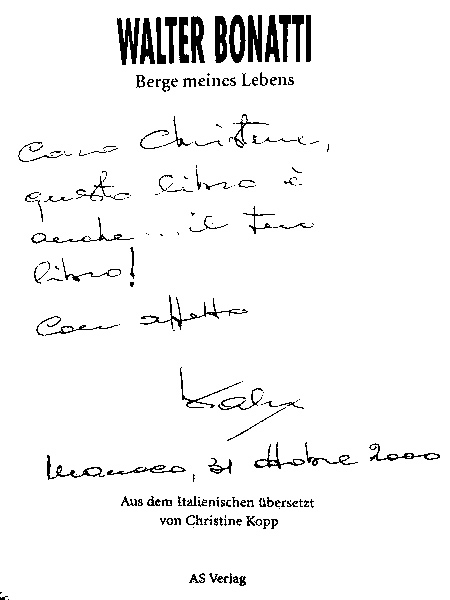 WALTER BONATTI
Berge meines Lebens
Cara Christine,
questo libro è
anche... il tuo
libro!
Con affetto
Walter
Monaco, 31 ottobre 2000
Aus dem Italienischen übersetzt
von Christine Kopp
AS Verlag